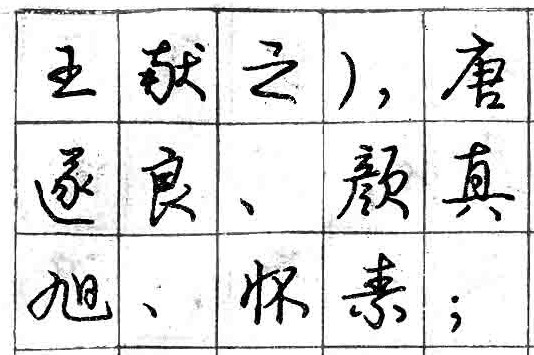 王献之),唐
遂良、颜真
旭、怀素;